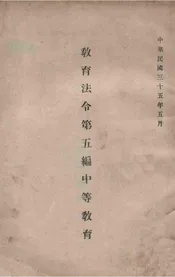 中華民國三十五年五月
教育法令第五編中等教育